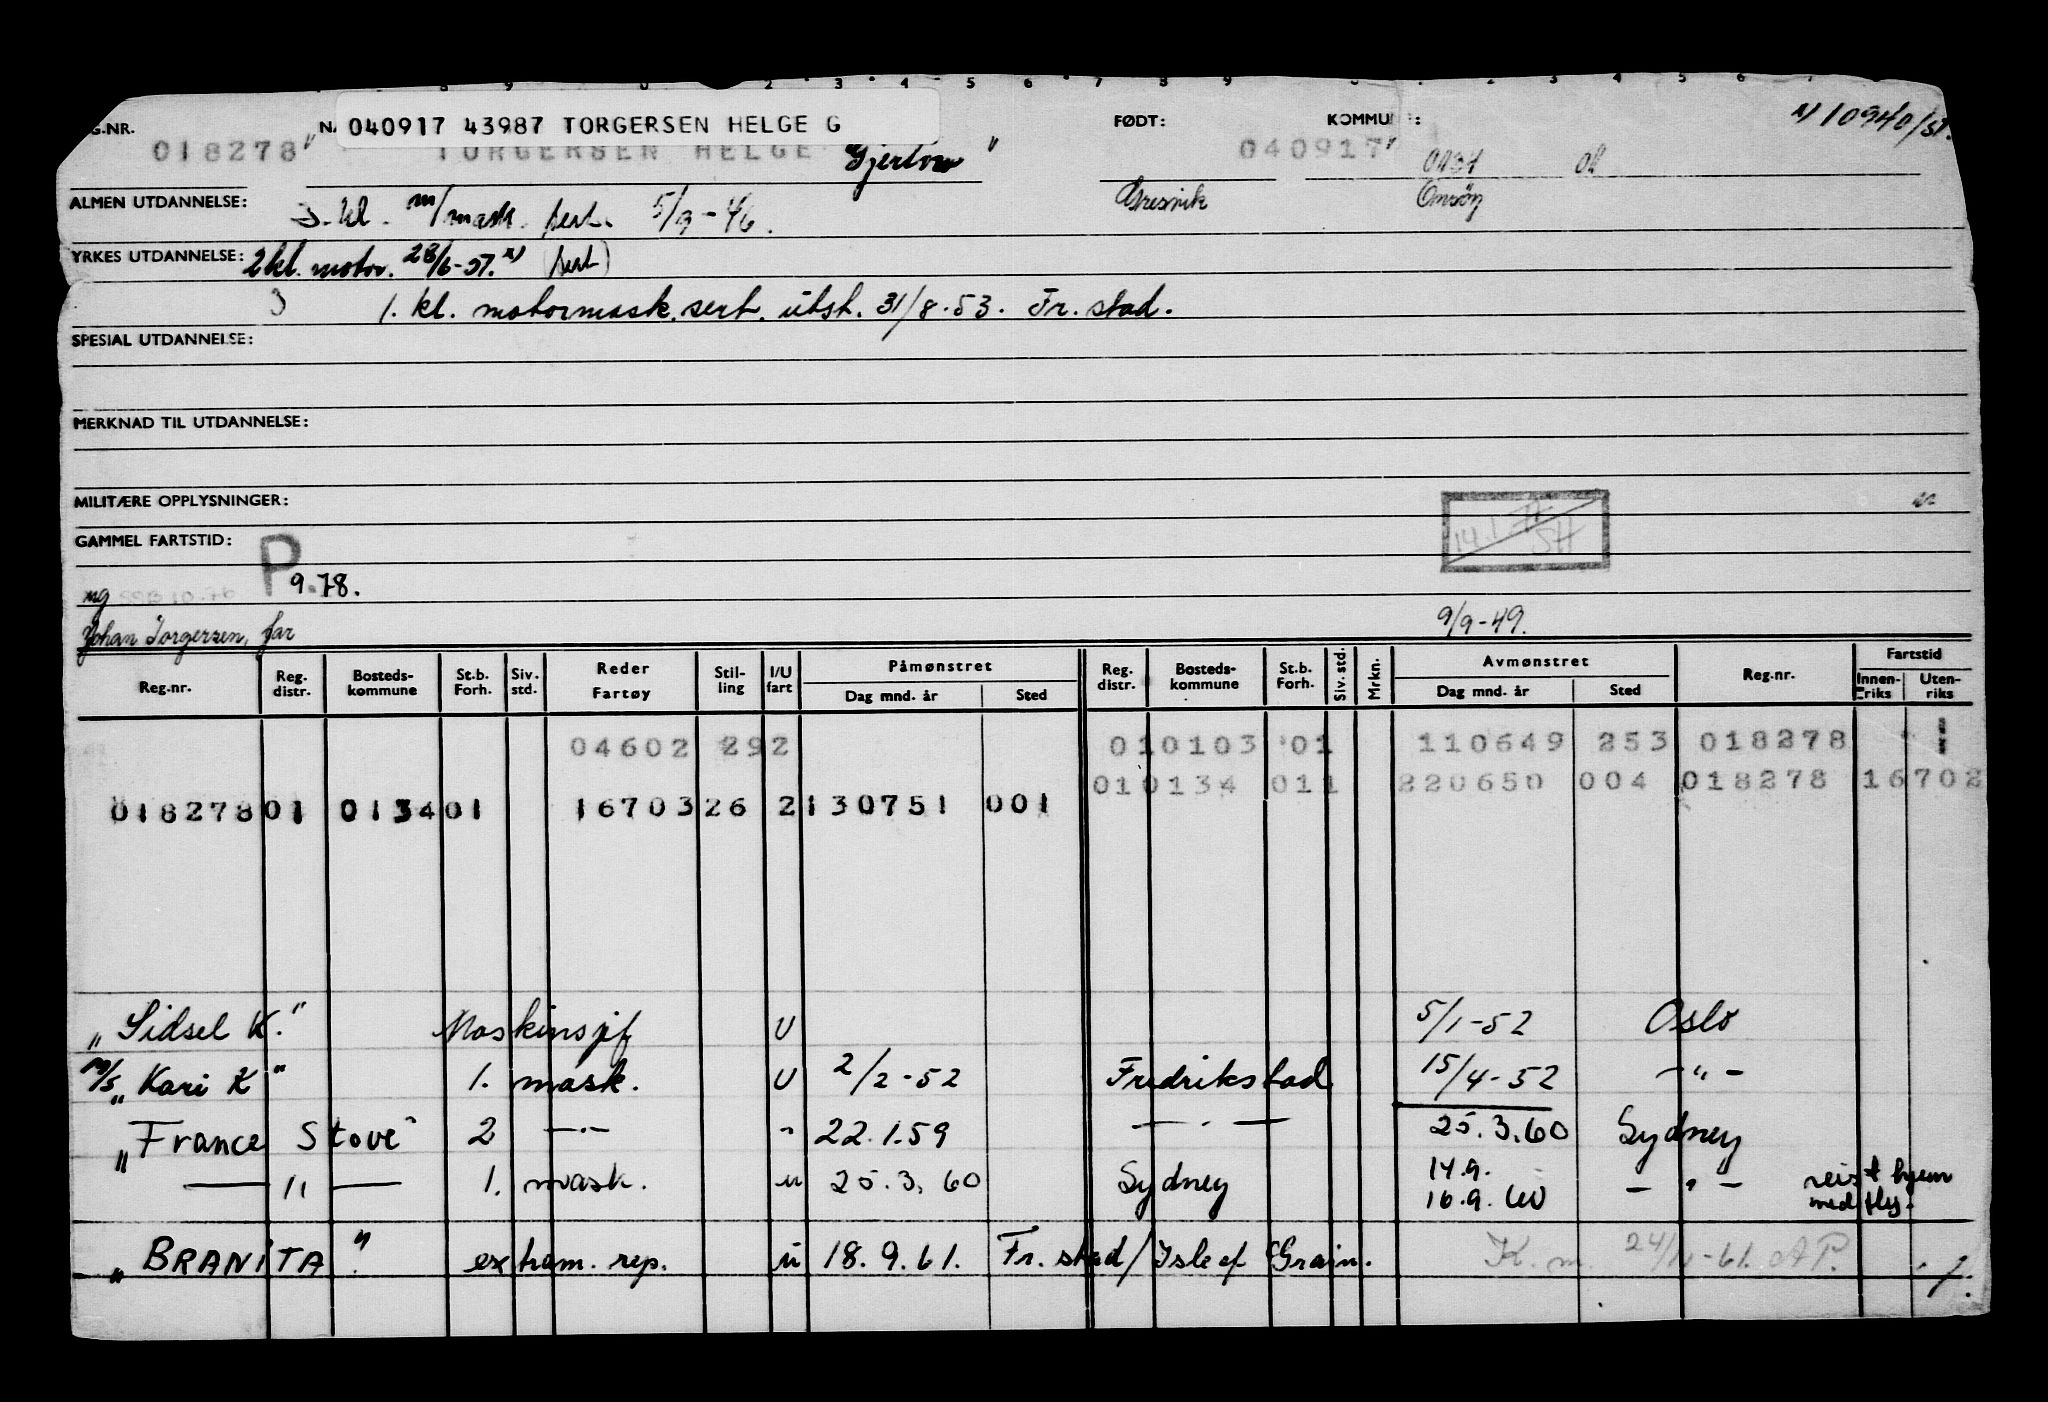 G.NR. NA 040917 43987 TORGERSEN HELGE G FØDT: KOMMUNE: x) 10940/57.
018278" TORGERSEN HELGE Gjerlow " 040917" 0134 01
ALMEN UTDANNELSE: 3. kl. m/mask. sert. 5/9-46. Gresvik Onsøy
YRKES UTDANNELSE: 2 kl. motor. 28/6-57. x) (sert)
1. kl. motormask. sert. utst. 31/8-53. Fr.stad.
SPESIAL UTDANNELSE:
MERKNAD TIL UTDANNELSE:
MILITÆRE OPPLYSNINGER:
GAMMEL FARTSTID: P 14.1 SH
ug SSB 10.76 9.78.
Johan Torgersen, far 9/9-49.
Reg.nr. Reg. distr. Bosteds- kommune St.b. Forh. Siv. std. Reder Fartøy Stil- ling I/U fart Påmønstret Dag mnd. år Sted Reg. distr. Bosteds- kommune St.b. Forh. Siv. std. Mrkn. Avmønstret Dag mnd. år Sted Reg.nr. Fartstid Innen- riks Uten- riks
04602 292 010103 01 110649 253 018278 1
010134 011 220650 004 018278 16702
018278 01 0134 01 16703 26 2 130751 001
"Sidsel K." Maskinsjef U 5/1-52 Oslo
m/s "Kari K" 1. mask. U 2/2-52 Fredrikstad 15/4-52 —"—
"France Stove" 2 —"— " 22.1.59 —"— 25.3.60 Sydney
—"— 1. mask. u 25.3.60 Sydney 14.9. 16.9.60 —"— reist hjem med fly.
"BRANITA" ex ham. rep. u 18.9.61. Fr.stad/Isle of Grain. K.m. 24/11-61. AP.